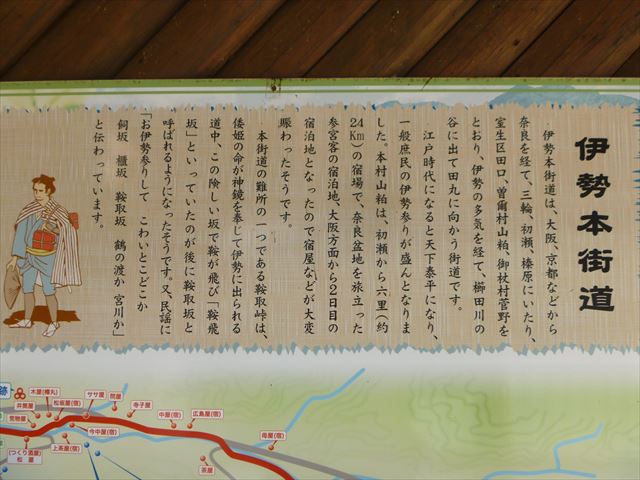 伊勢本街道
伊勢本街道は、大阪、京都などから
奈良を経て、三輪、初瀬、榛原にいたり、
室生区田口、曽爾村山粕、御杖村菅野を
とおり、伊勢の多気を経て、櫛田川の
谷に出て田丸に向かう街道です。
江戸時代になると天下泰平になり、
一般庶民の伊勢参りが盛んとなりま
した。本村山粕は、初瀬から六里(約
24Km)の宿場で、奈良盆地を旅立った
参宮客の宿泊地、大阪方面から2日目の
宿泊地となったので宿屋などが大変
賑わったそうです。
本街道の難所の一つである鞍取峠は、
倭姫の命が神鏡を奉じて伊勢に出られる
道中、この険しい坂で鞍が飛び「鞍飛
坂」といっていたのが後に鞍取坂と
呼ばれるようになったそうです。又、民謡に
「お伊勢参りして こわいとこどこか
飼坂 櫃坂 鞍取坂 鶴の渡か 宮川か」
と伝わっています。
跡
木屋(樽丸)
井筒屋
荒物屋
松坂屋(宿)
ササ屋
問屋
寺子屋
中屋(宿)
広島屋(宿)
母屋(宿)
今中屋(宿)
上茶屋(宿)
茶屋
(つくり酒屋)
松屋